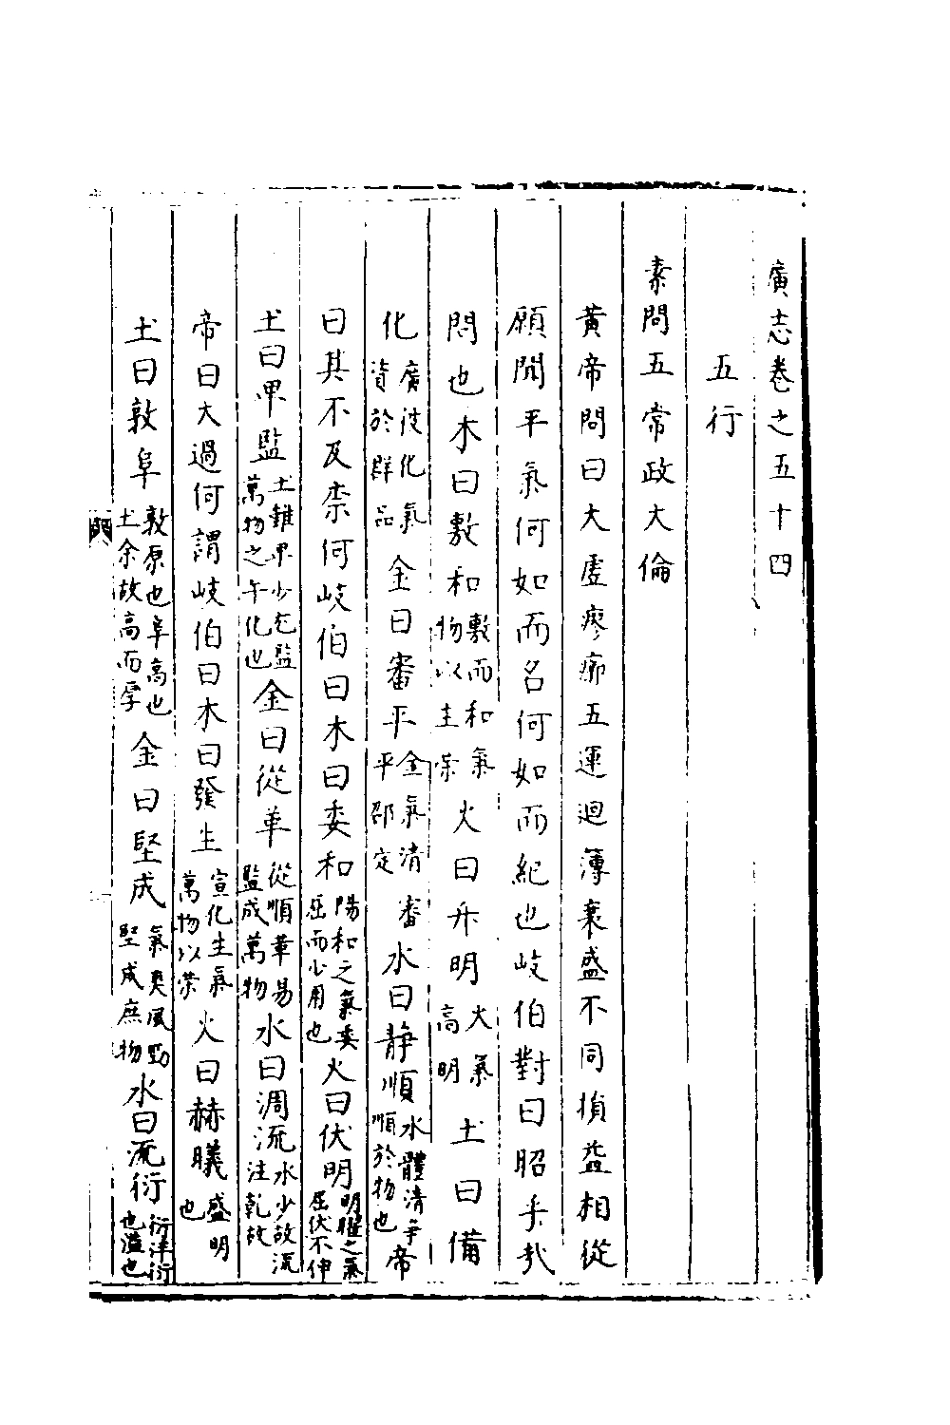 廣志卷之五十四
五行
素問五常政大倫
黃帝問曰大虛寥廓五運迴薄衰盛不同損益相從
願聞平氣何如而名何如而紀也岐伯對曰昭乎哉
問也木曰敷和敷而和氣物以主榮火曰升明火氣高明土曰備
化廣彼化氣資於群品金曰審平金氣清審平邵定水曰靜順水體清爭順於物也帝
曰其不及柰何岐伯曰木曰委和陽和之氣委屈而少用也火曰伏明明曜之氣屈伏不伸
土曰卑監土雖卑少尤監萬物之午化也金曰從革從順革易監成萬物水曰涸流水少故流注乾故
帝曰大過何謂岐伯曰木曰發生宣化生氣萬物以榮火曰赫曦盛明也
土曰敦阜敦原也阜高也土余故高而厚金曰堅成氣爽風勁堅成庶物水曰流衍衍洋衍也溢也